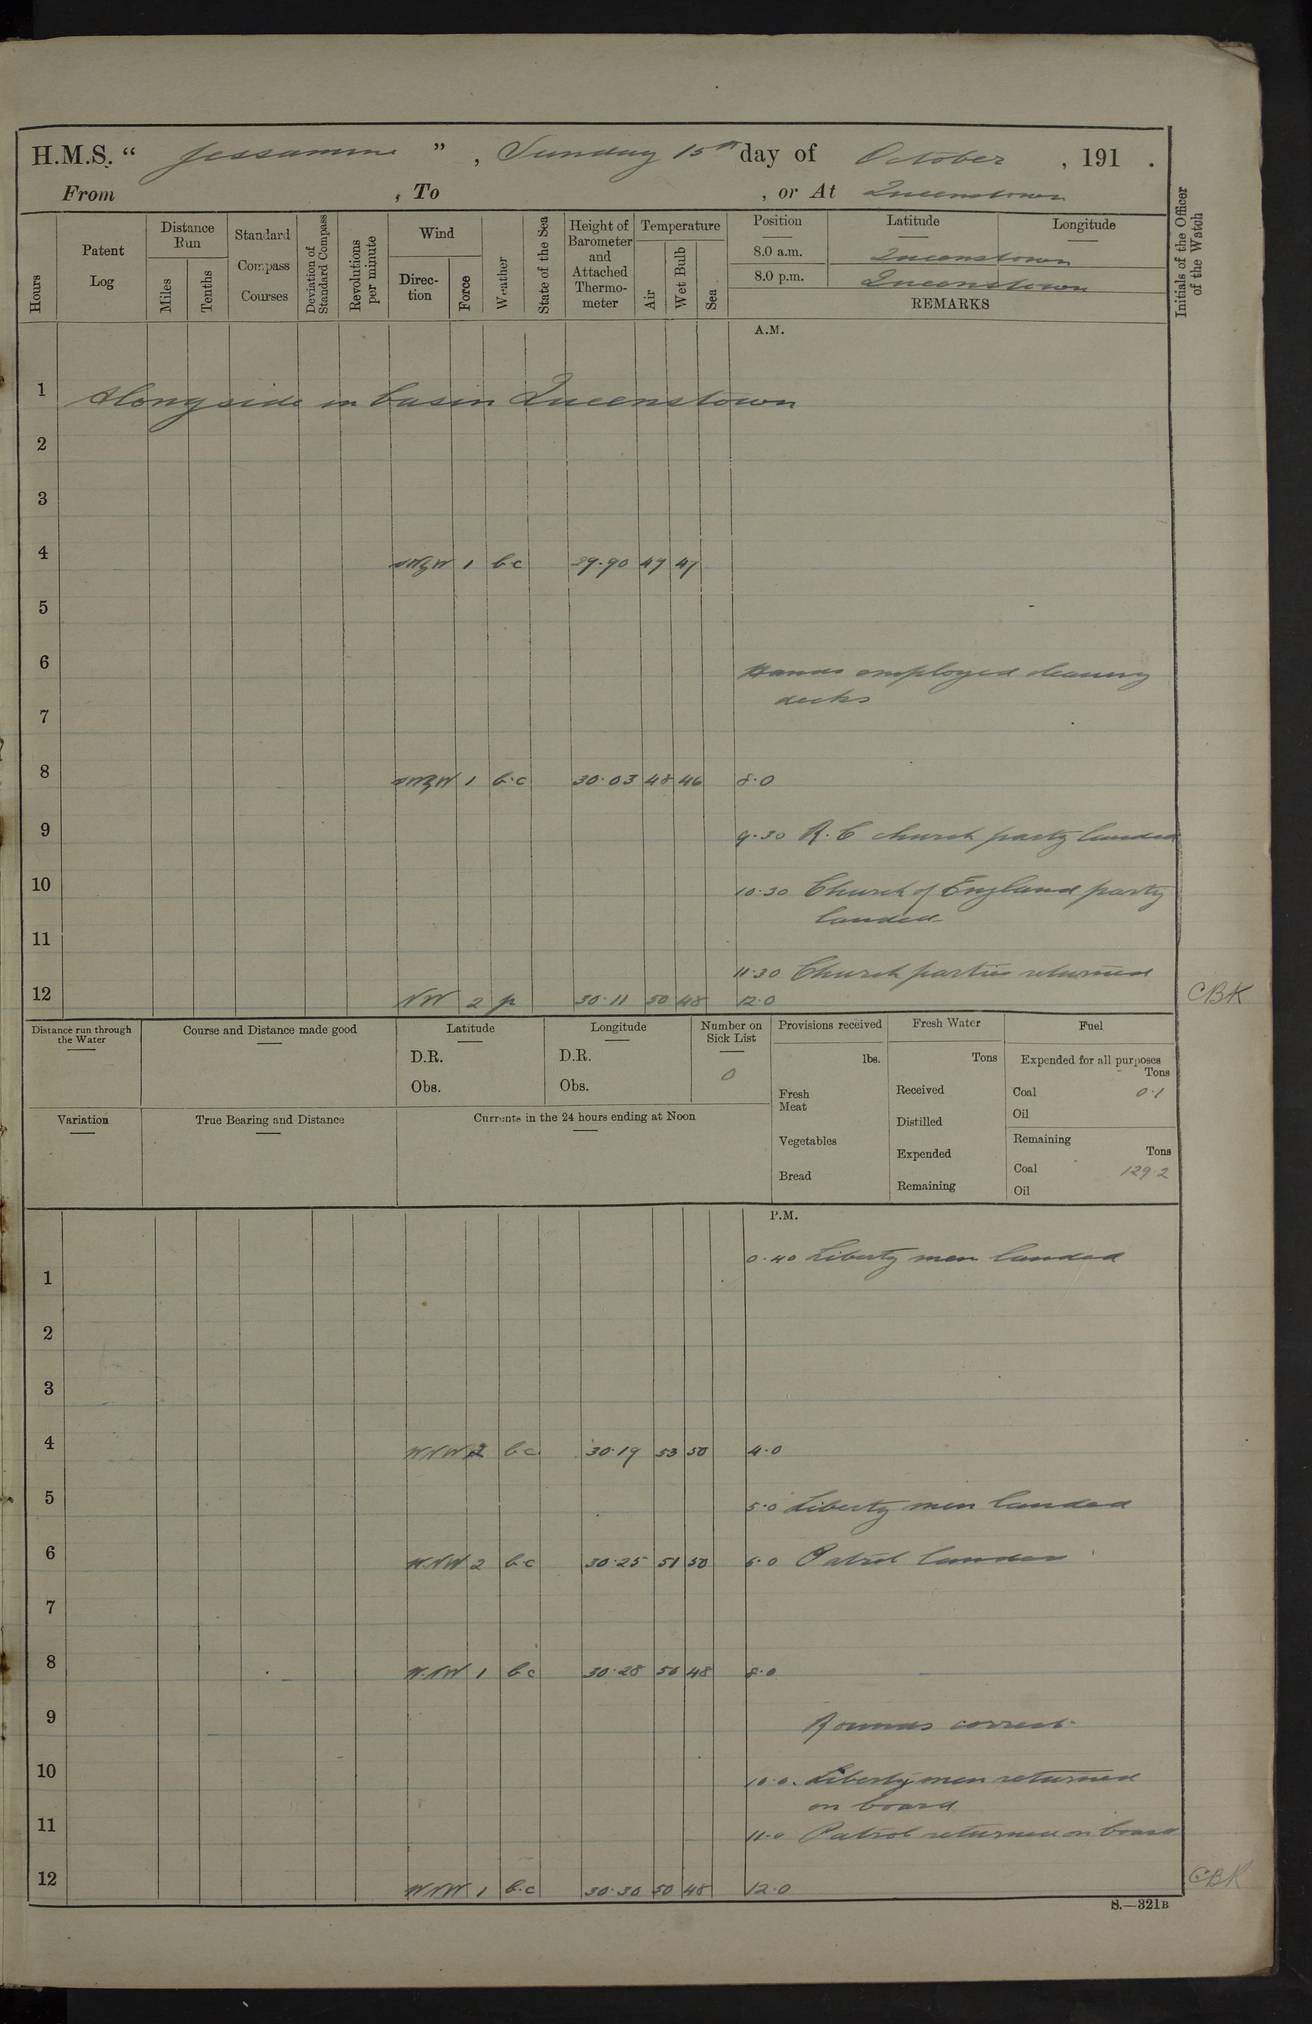 H.M.S. “ Jessamine ” , Sunday 15th day of October , 191 .
From , To , or At Queenstown
Hours
Patent Log
Distance Run
Miles
Tenths
Standard Compass Courses
Deviation of Standard Compass
Revolutions per minute
Wind
Direction
Force
Weather
State of the Sea
Height of Barometer and Attached Thermometer
Temperature
Air
Wet Bulb
Sea
Position
Latitude
Longitude
8.0 a.m. Queenstown
8.0 p.m. Queenstown
REMARKS
Initials of the Officer of the Watch
A.M.
1 Alongside in basin Queenstown
2
3
4 1 bc 29.90 47
5
6 Hands employed cleaning
decks
7
8 1 b.c 30.03 48 46 8.0
9 9.30 R.C church party landed
10 10.30 Church of England party
landed
11
11.30 Church parties returned
12 NW 2 p 30.11 50 48 12.0 CBK
Distance run through the Water
Course and Distance made good
Latitude
D.R.
Obs.
Longitude
D.R.
Obs.
Number on Sick List
0
Provisions received
lbs.
Fresh Meat
Vegetables
Bread
Fresh Water
Tons
Received
Distilled
Expended
Remaining
Fuel
Expended for all purposes
Tons
Coal 0.1
Oil
Remaining
Tons
Coal 129.2
Oil
Variation
True Bearing and Distance
Currents in the 24 hours ending at Noon
P.M.
0.40 Liberty men landed
1
2
3
4 WNW 2 bc 30.19 53 50 4.0
5 5.0 Liberty men landed
6 WNW 2 b.c 30.25 51 50 6.0 Patrol landed
7
8 WNW 1 bc 30.28 50 48 8.0
9 Rounds correct.
10 10.0. Liberty men returned
on board
11 11.0 Patrol returned on board
12 WNW 1 b.c 30.30 50 48 12.0 CBK
S.—321B